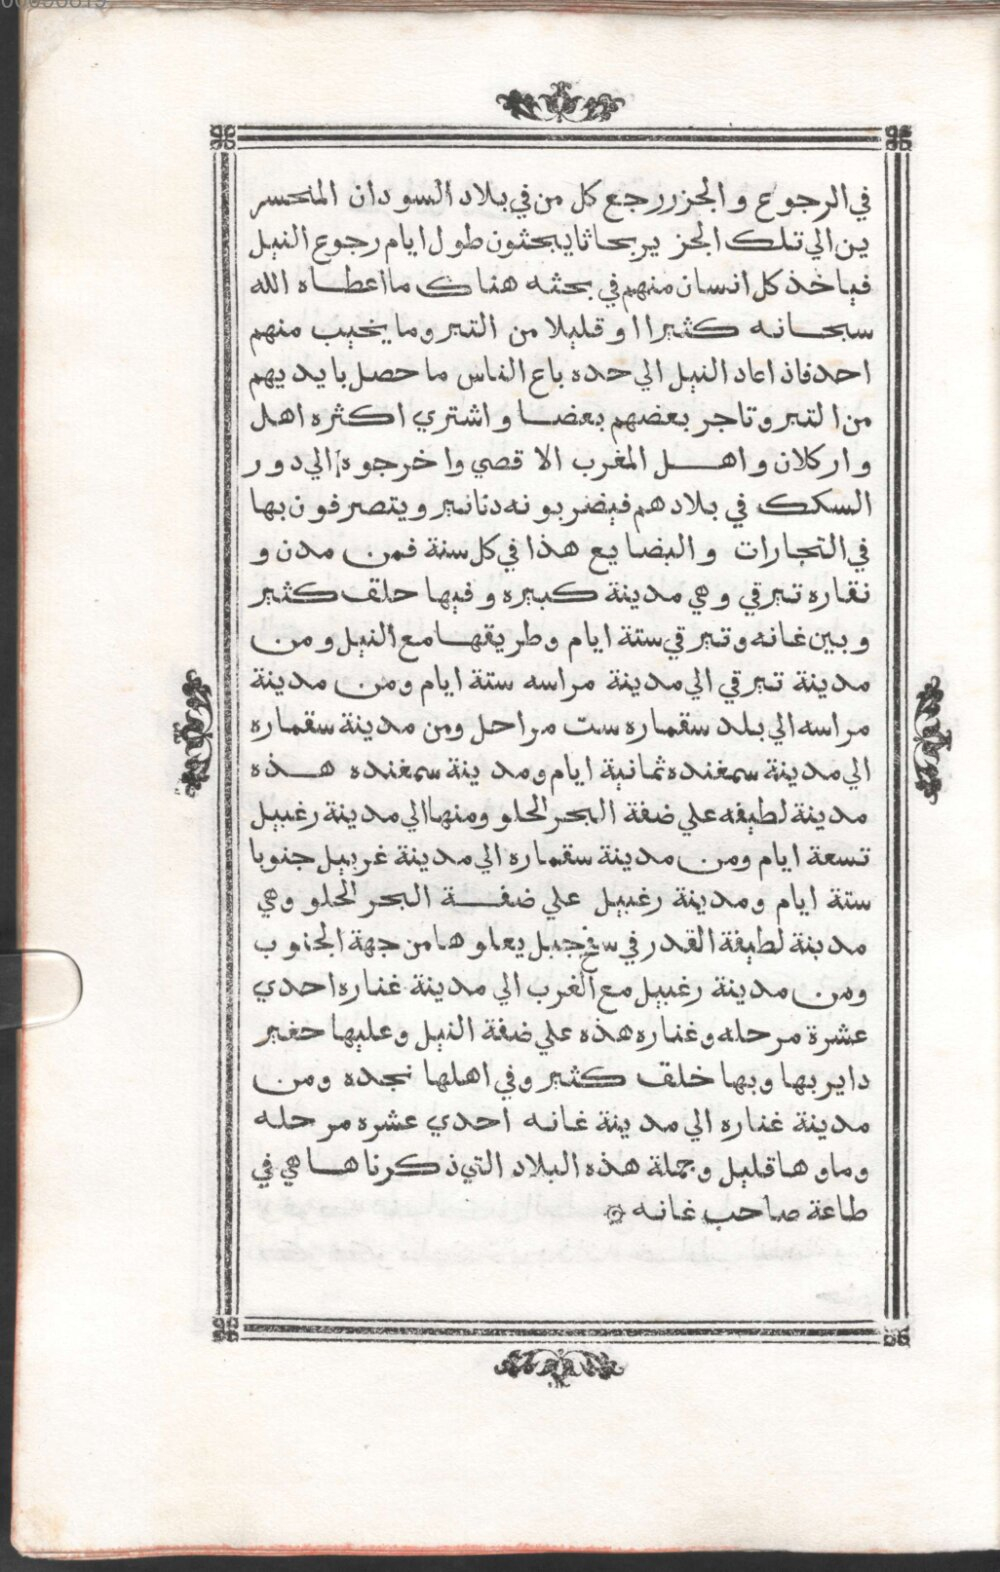 في الرجوع والجزر رجع كل من في بلاد السودان المنحسر
ين الي تلك الجز يربحاثا يبحثون طول ايام رجوع النيل
فياخذ كل انسان منهم في بحثه هناك ما اعطاه الله
سبحانه كثيرا او قليلا من التبر وما يخيب منهم
احد فاذا عاد النيل الي حده باع الناس ما حصل بايديهم
من التبر وتاجر بعضهم بعضا واشتري اكثره اهل
واركلان واهل المغرب الاقصي واخرجوه الي دور
السكك في بلادهم فيضربونه دنانير ويتصرفون بها
في التجارات والبضايع هذا في كل سنة فمن مدن و
نقاره تيرقي وهي مدينة كبيره وفيها حلق كثير
وبين غانه وتيرقي ستة ايام وطريقها مع النيل ومن
مدينة تيرقي الي مدينة مراسه ستة ايام ومن مدينة
مراسه الي بلد سقماره ست مراحل ومن مدينة سقماره
الي مدينة سمغنده ثمانية ايام ومدينة سمغنده هذه
مدينة لطيفه علي ضفة البحر الحلو ومنها الي مدينة رغبيل
تسعة ايام ومن مدينة سقماره الي مدينة غربيل جنوبا
ستة ايام ومدينة رغبيل علي ضفة البحر الحلو وهي
مدينة لطيفة القدر في سفح جبل يعلوها من جهة الجنوب
ومن مدينة رغبيل مع الغرب الي مدينة غناره احدي
عشرة مرحله وغناره هذه علي ضفة النيل وعليها حفير
داير بها وبها خلق كثير وفي اهلها نجده ومن
مدينة غناره الي مدينة غانه احدي عشره مرحله
وماوها قليل وجملة هذه البلاد التي ذكرناها هي في
طاعة صاحب غانه